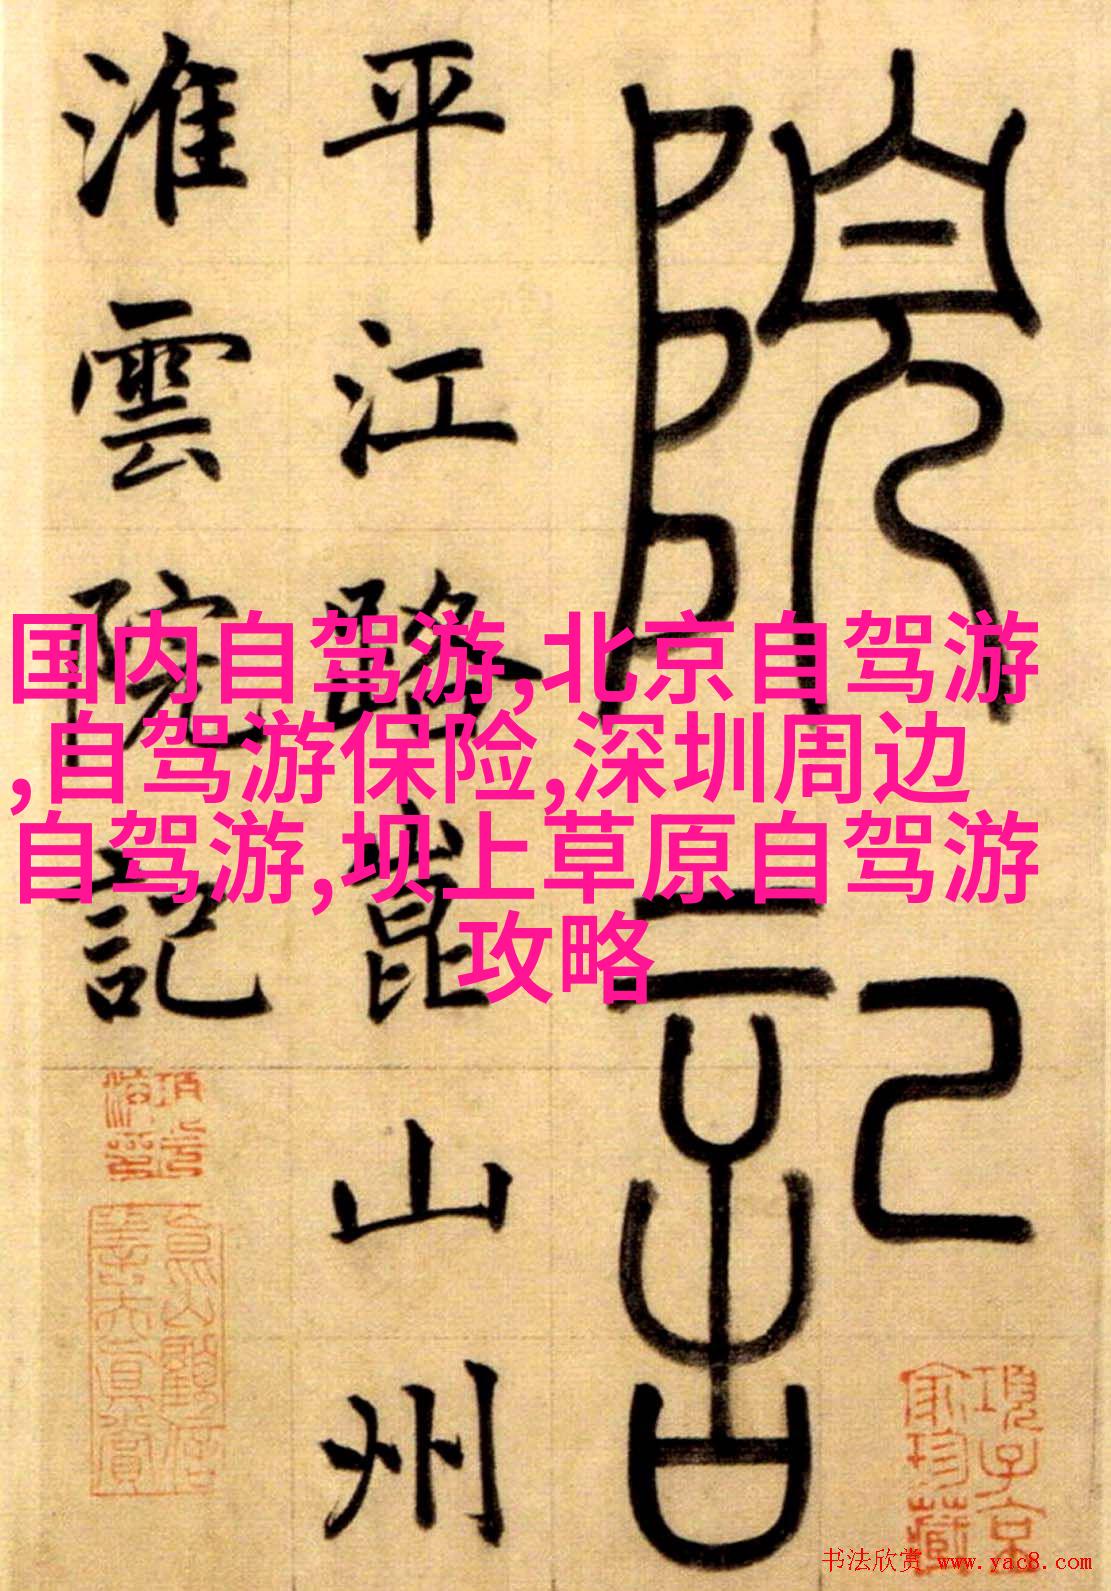 院記
平江路崑山州
淮雲院記
国内自驾游,北京自驾游
,自驾游保险,深圳周边
自驾游,坝上草原自驾游
攻略
項子京
家珍藏
书法欣赏 www.yac8.com